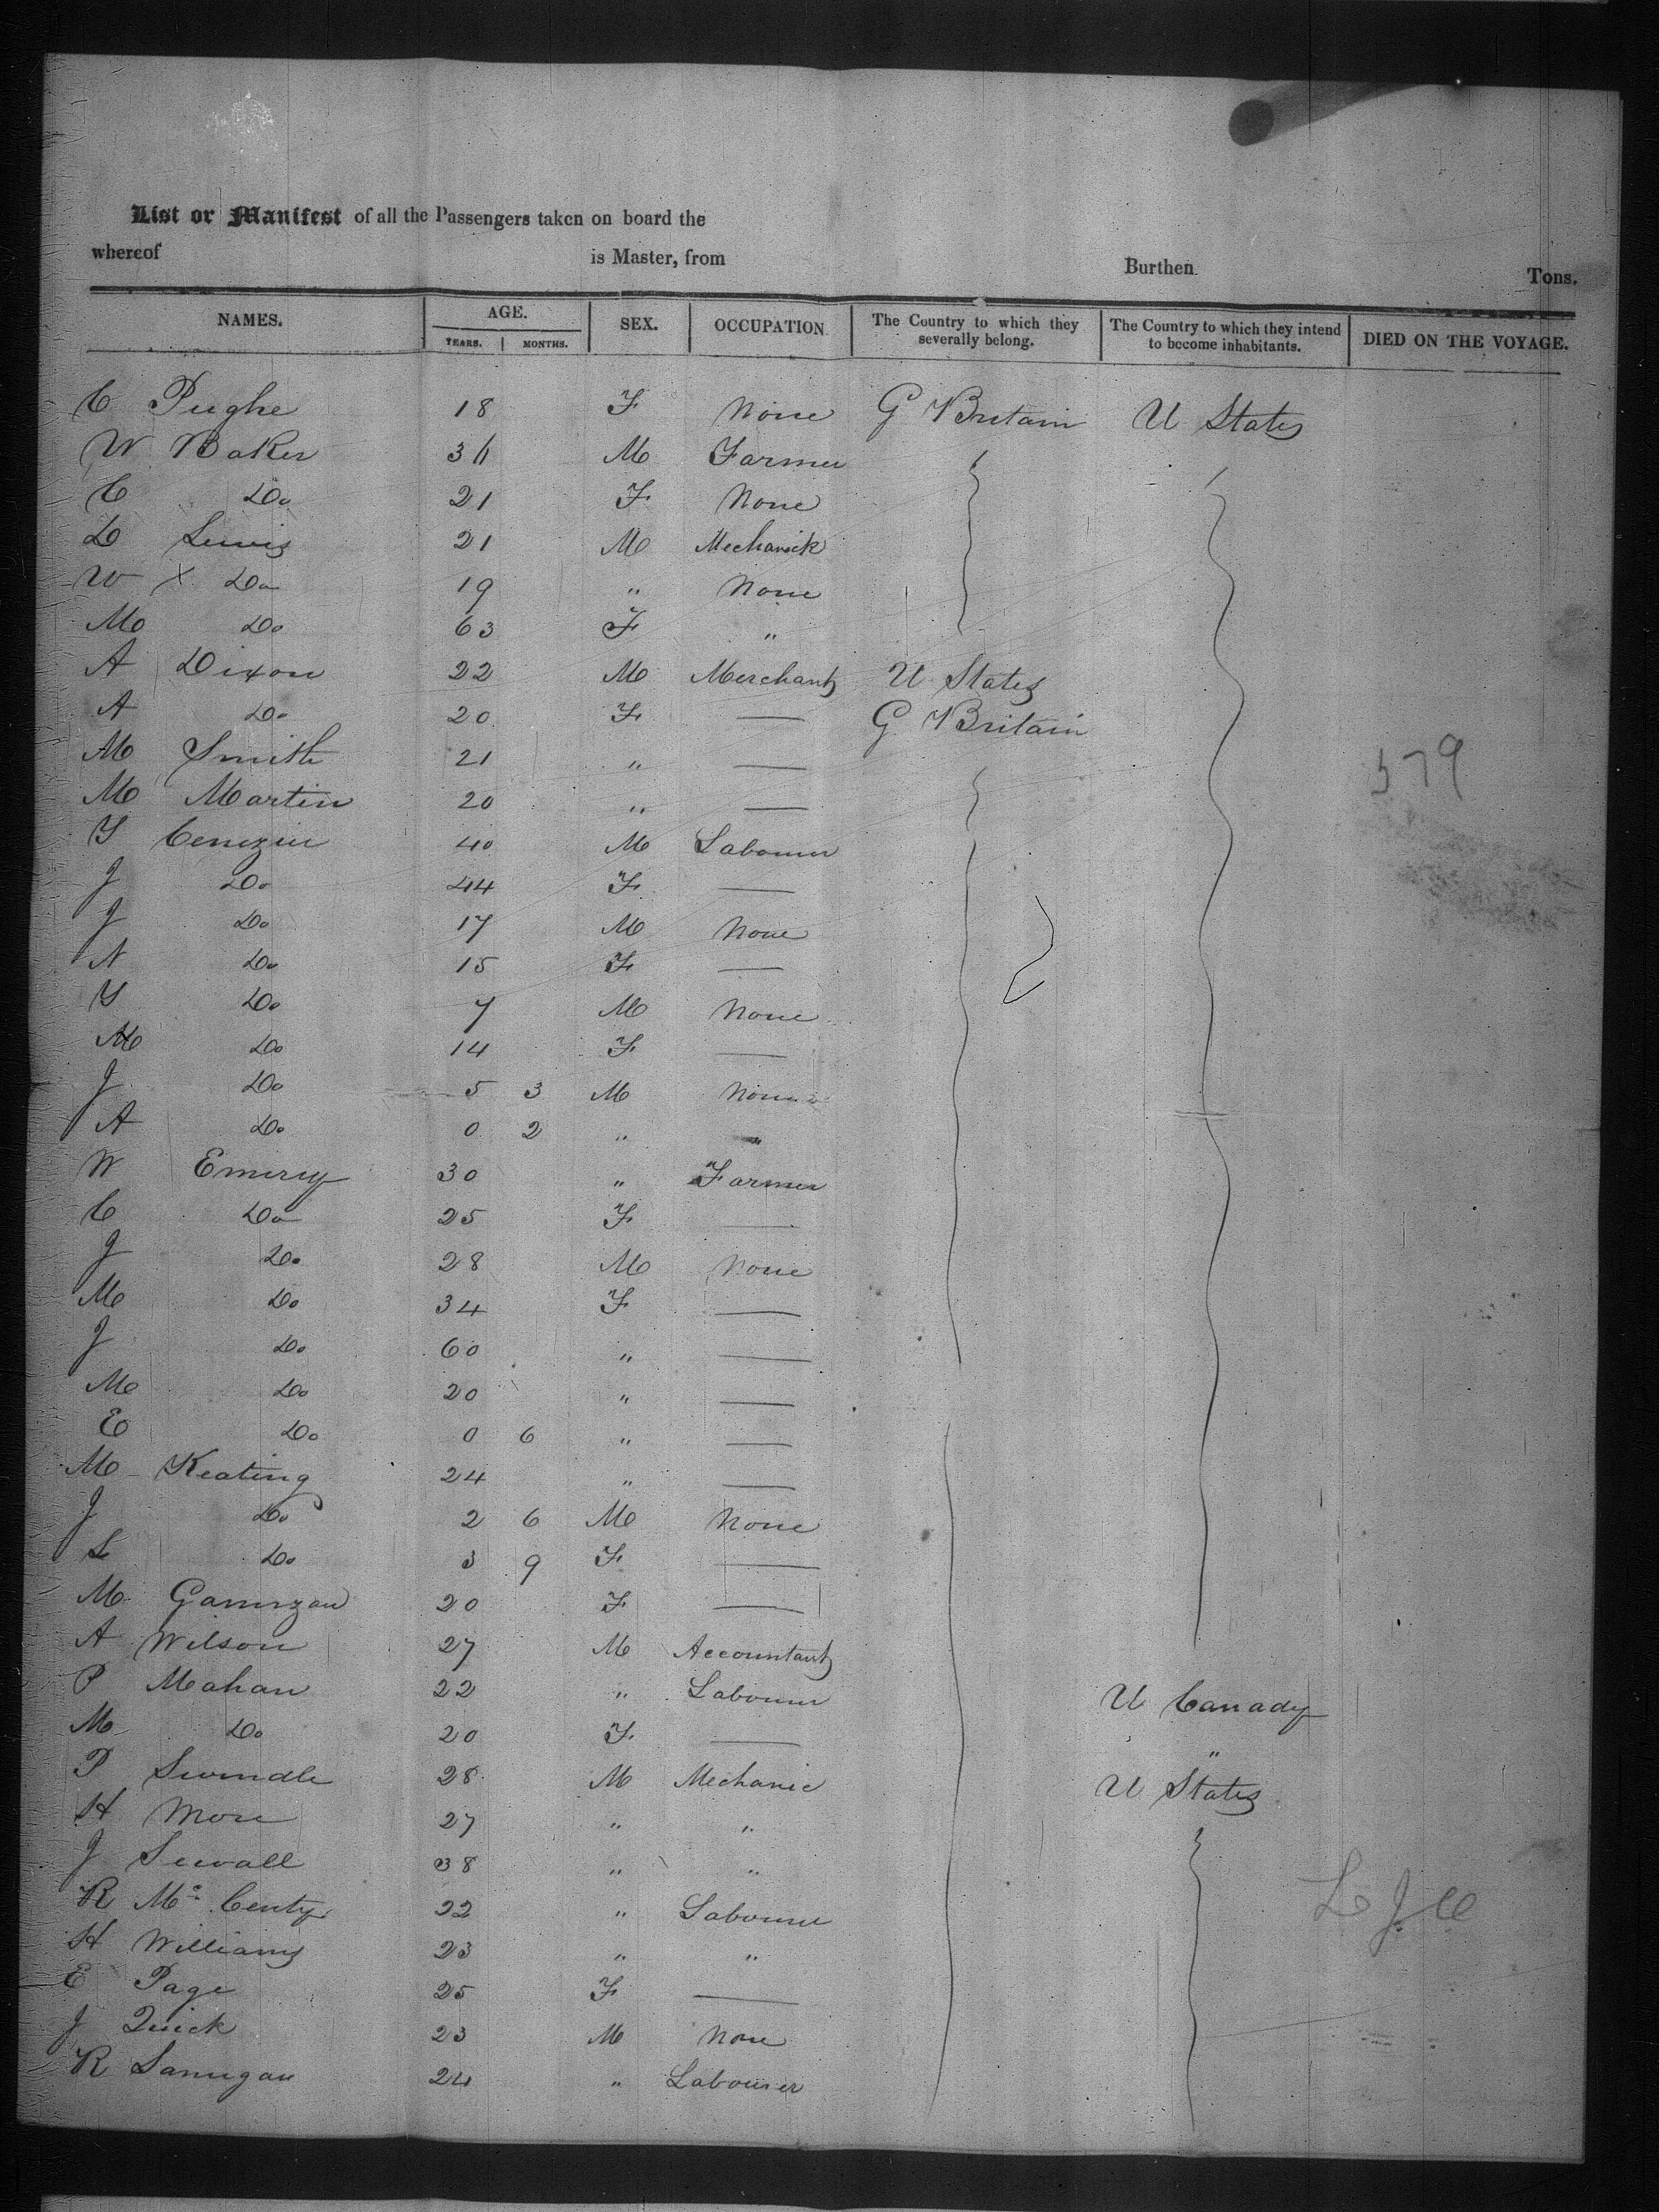 List or Manifest of all the Passengers taken on board the
whereof is Master, from Burthen Tons.
NAMES. AGE. SEX. OCCUPATION The Country to which they severally belong. The Country to which they intend to become inhabitants. DIED ON THE VOYAGE.
YEARS. MONTHS.
C Pughe 18 F None G Britain U States
W Baker 36 M Farmer
C Do 21 F None
D Lewis 21 M Mechanick
W X Do 19 " None
M Do 63 F "
A Dixon 22 M Merchant U States
A Do 20 F — G Britain
M Smith 21 " —
M Martin 20 " —
40 M Labourer
J Do 44 F —
J Do 17 M None
N Do 15 F —
Do 7 M None
M Do 14 F —
J Do 5 3 M None
A Do 0 2 " "
W Emery 30 " Farmer
C Do 25 F —
J Do 28 M None
M Do 34 F —
J Do 60 " —
M Do 20 " —
E Do 0 6 " —
M Keating 24 " —
J Do 2 6 M None
L Do 3 9 F —
M 20 F —
A Wilson 27 M Accountant
P Mahan 22 " Labourer U Canady
M Do 20 F — "
P Swindle 28 M Mechanic U States
H More 27 " "
J Sewall 38 " "
R Mc Centy 22 " Labourer
H Williams 23 " "
E Page 25 F —
J Quick 23 M None
R Lanugan 24 " Labourer
579